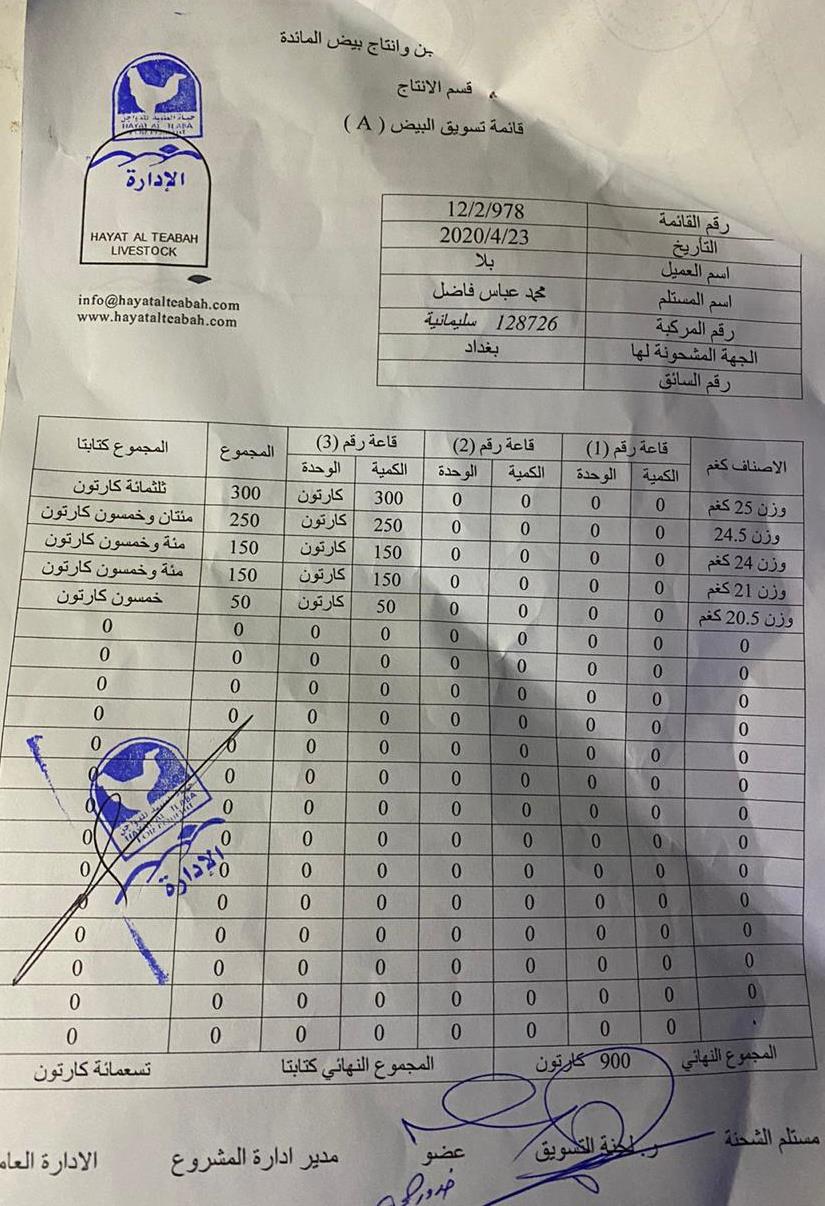 وانتاج بيض المائدة
قسم الانتاج
قائمة تسويق البيض ( A )
حياة الطيبة للدواجن
HAYAT AL TEABA
FOR POULTRY
الإدارة
HAYAT AL TEABAH
LIVESTOCK
info@hayatalteabah.com
www.hayatalteabah.com
رقم القائمة 12/2/978
التاريخ 2020/4/23
اسم العميل بلا
اسم المستلم محمد عباس فاضل
رقم المركبة 128726 سليمانية
الجهة المشحونة لها بغداد
رقم السائق
الاصناف كغم قاعة رقم (1) قاعة رقم (2) قاعة رقم (3) المجموع المجموع كتابتا
الكمية الوحدة الكمية الوحدة الكمية الوحدة
وزن 25 كغم 0 0 0 0 300 كارتون 300 ثلثمائة كارتون
وزن 24.5 0 0 0 0 250 كارتون 250 مئتان وخمسون كارتون
وزن 24 كغم 0 0 0 0 150 كارتون 150 مئة وخمسون كارتون
وزن 21 كغم 0 0 0 0 150 كارتون 150 مئة وخمسون كارتون
وزن 20.5 كغم 0 0 0 0 50 كارتون 50 خمسون كارتون
0 0 0 0 0 0 0 0 0
0 0 0 0 0 0 0 0 0
0 0 0 0 0 0 0 0 0
0 0 0 0 0 0 0 0 0
0 0 0 0 0 0 0 0 0
0 0 0 0 0 0 0 0 0
0 0 0 0 0 0 0 0 0
0 0 0 0 0 0 0 0 0
0 0 0 0 0 0 0 0 0
0 0 0 0 0 0 0 0 0
0 0 0 0 0 0 0 0 0
0 0 0 0 0 0 0 0 0
0 0 0 0 0 0 0 0 0
0 0 0 0 0 0 0 0
المجموع النهائي 900 كارتون المجموع النهائي كتابتا تسعمائة كارتون
حياة الطيبة للدواجن
HAYAT AL TEABA
FOR POULTRY
الإدارة
مستلم الشحنة ر. لجنة التسويق عضو مدير ادارة المشروع الادارة